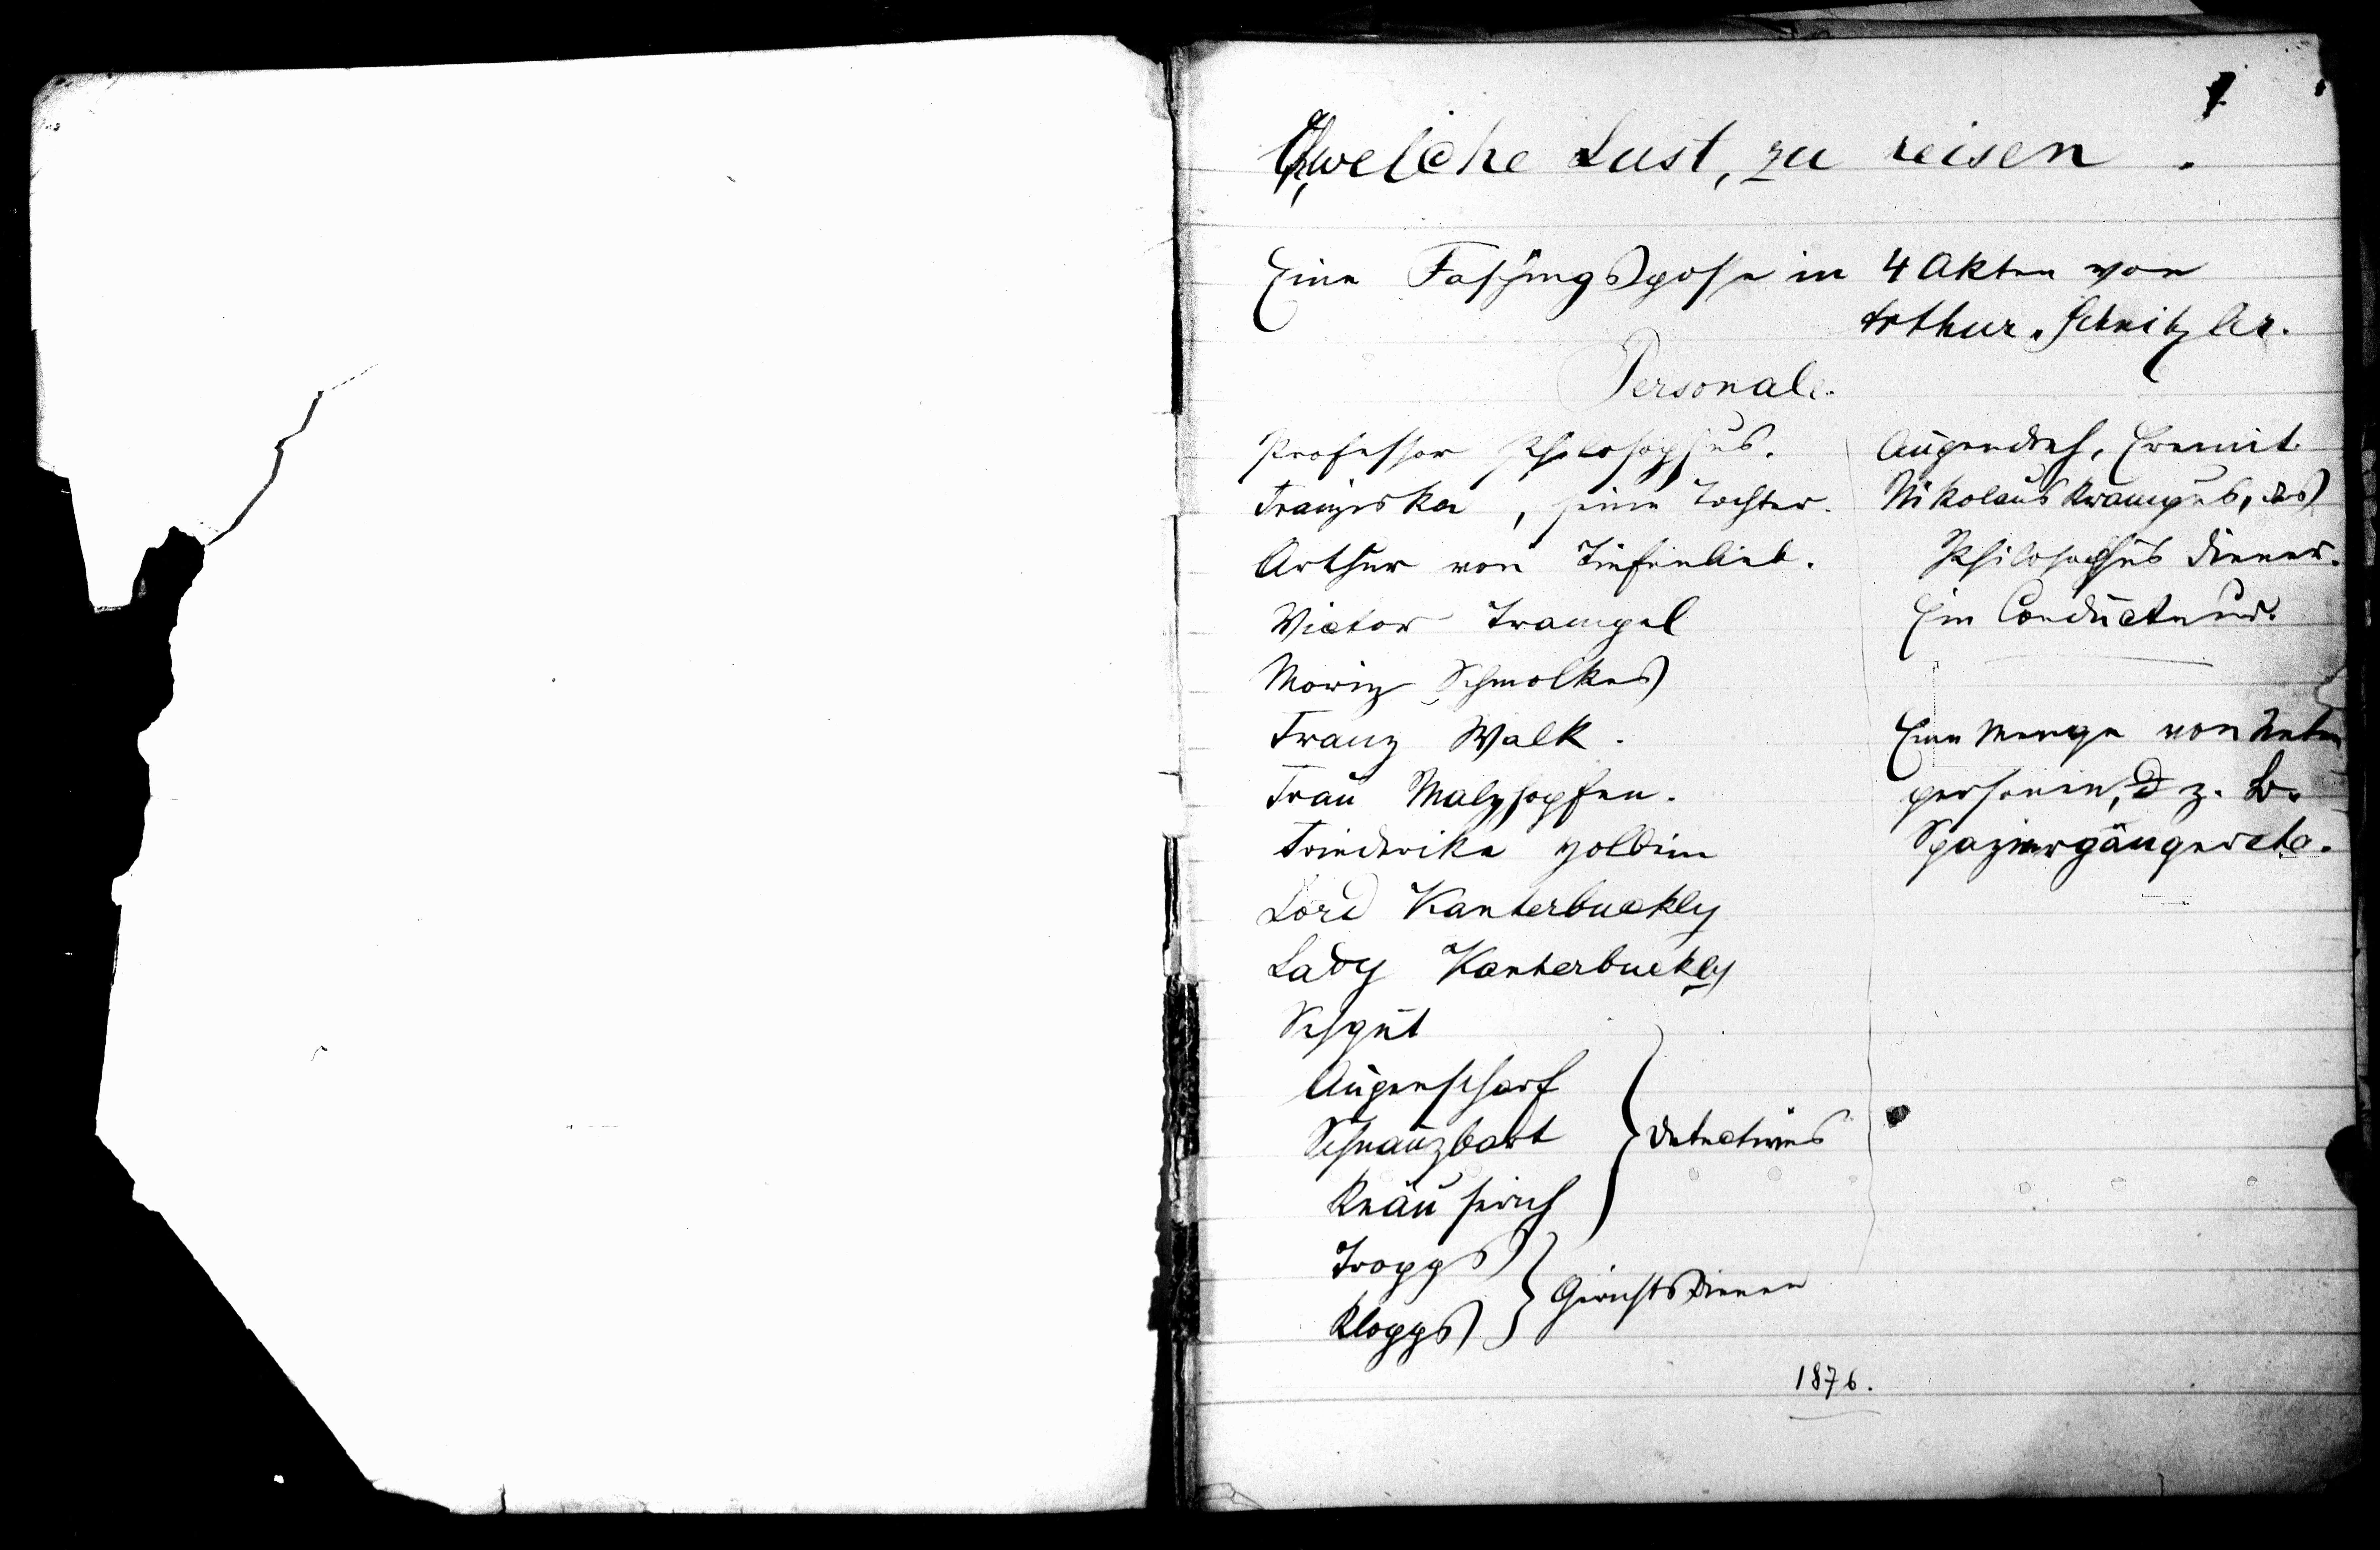 1
O, welche Lust, zu reisen.
Eine Faschingsposse in 4 Akten von
Arthur Schnitzler.
Personale.
Professor Philosophus.
Franziska, seine Tochter.
Arthur von Tiefenlieb.
Victor Trampel
Moriz Schmolkes
Franz Walk.
Frau Malzhopfen.
Friederike Holdim
Lord Kanterbuckly
Lady Kanterbuckly
Schgut
Augenscharf
Schnauzbart
Detectives
Knäuserich
Tropps
Gerichtsdiener
Klopps
Augendreh, Eremit.
Nikolaus Krampus, des
Philosophus Diener.
Ein Conducteur.
Eine Menge von Neben
personen, z. B.
Spaziergänger etc.
1876.